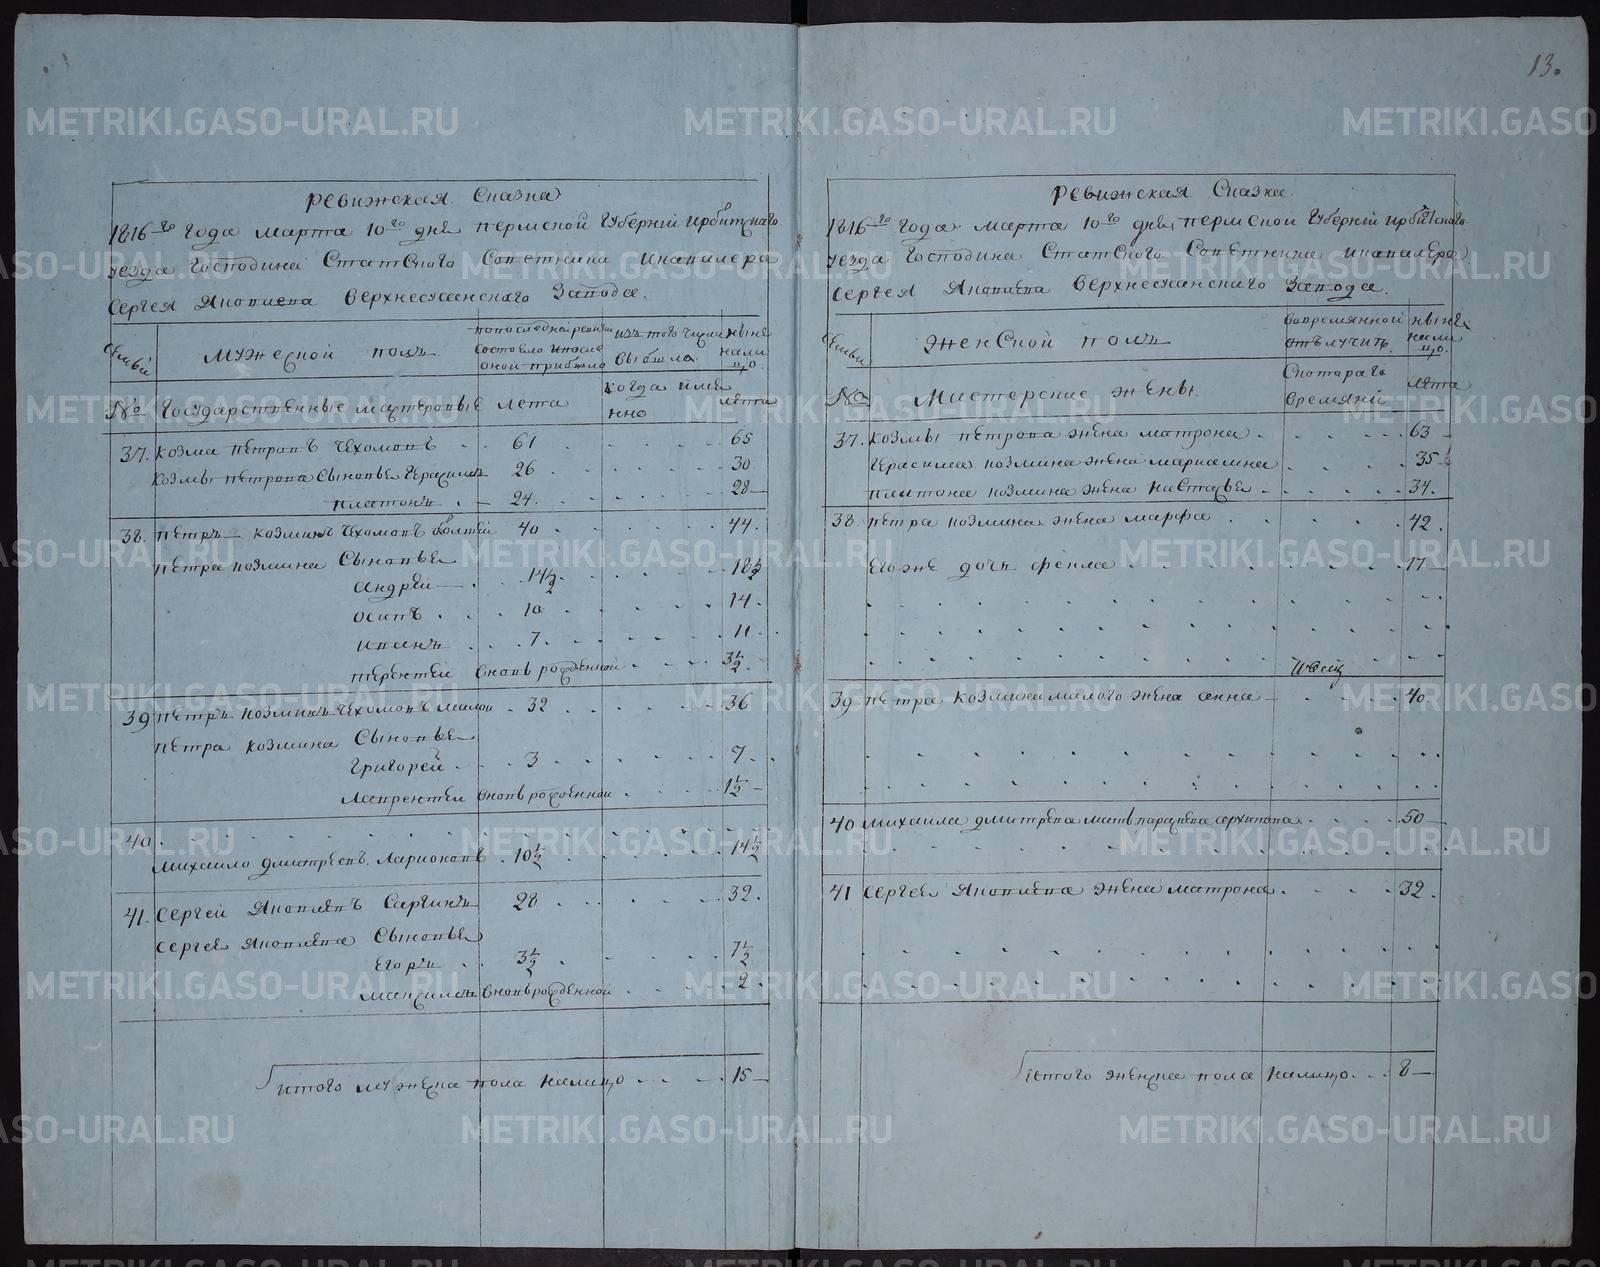 13.
Ревижская Сказка
1816го года марта 10го дня пермской Губернiи ирбитскаго
уезда Господина Статского Советника икавалера
Сергея Яковлева верхнесусанского Завода.
Семьи
мужеской полъ
попоследней ревизiи состояло ипосле оной прибыло
изъ того числа выбыло
ныне налицо
№
Государственные мастеровые
лета
когда имянно
лета
37. козма петровъ Чехомовъ . . 61 65
козмы петрова Сыновья Герасимъ 26 30
платонъ . 24. 28
38. петръ козминъ Чехомовъ болшей 40 44.
петра козмина Сыновья
андрей 14½ 18½
осипъ . 10 14.
иванъ . 7. 11.
терентей вновь рожденной 3½
39 петръ козминъ Чехомовъ малой . 32 36
петра козмина Сыновья
григорей . 3 7.
лаврентей вновьрожденной 1½
40.
михаило дмитреевъ Ларионовъ . 10½ 14½
41. Сергей Яковлевъ Саргинъ 28 32.
Сергея Яковлева Сыновья
Егоръ . 3½ 7½
максимъ вновьрожденной 2.
итого мужеска пола налицо 15
Ревижская Сказка.
1816го года марта 10го дня, пермской Губернiи ирбитского
уезда Господина Статского Советника икавалера
Сергея Яковлева верхнесусанского Завода.
Семьи
Женской полъ
вовремянной отълучкъ.
ныне налицо.
№
Мастерские жены.
Скотораго времяни
лета
37. козмы петрова жена матрона . 63
герасима козмина жена мариамна 35
платона козмина жена настасья 34.
38. петра козмина жена марфа 42.
Егоже дочь фекла 17
39 петра козмина малого жена анна 40.
40 михаила дмитрева мать парасковья архипова 50
41 Сергея Яковлева жена матрона. 32.
итого женска пола налицо. 8
METRIKI.GASO-URAL.RU